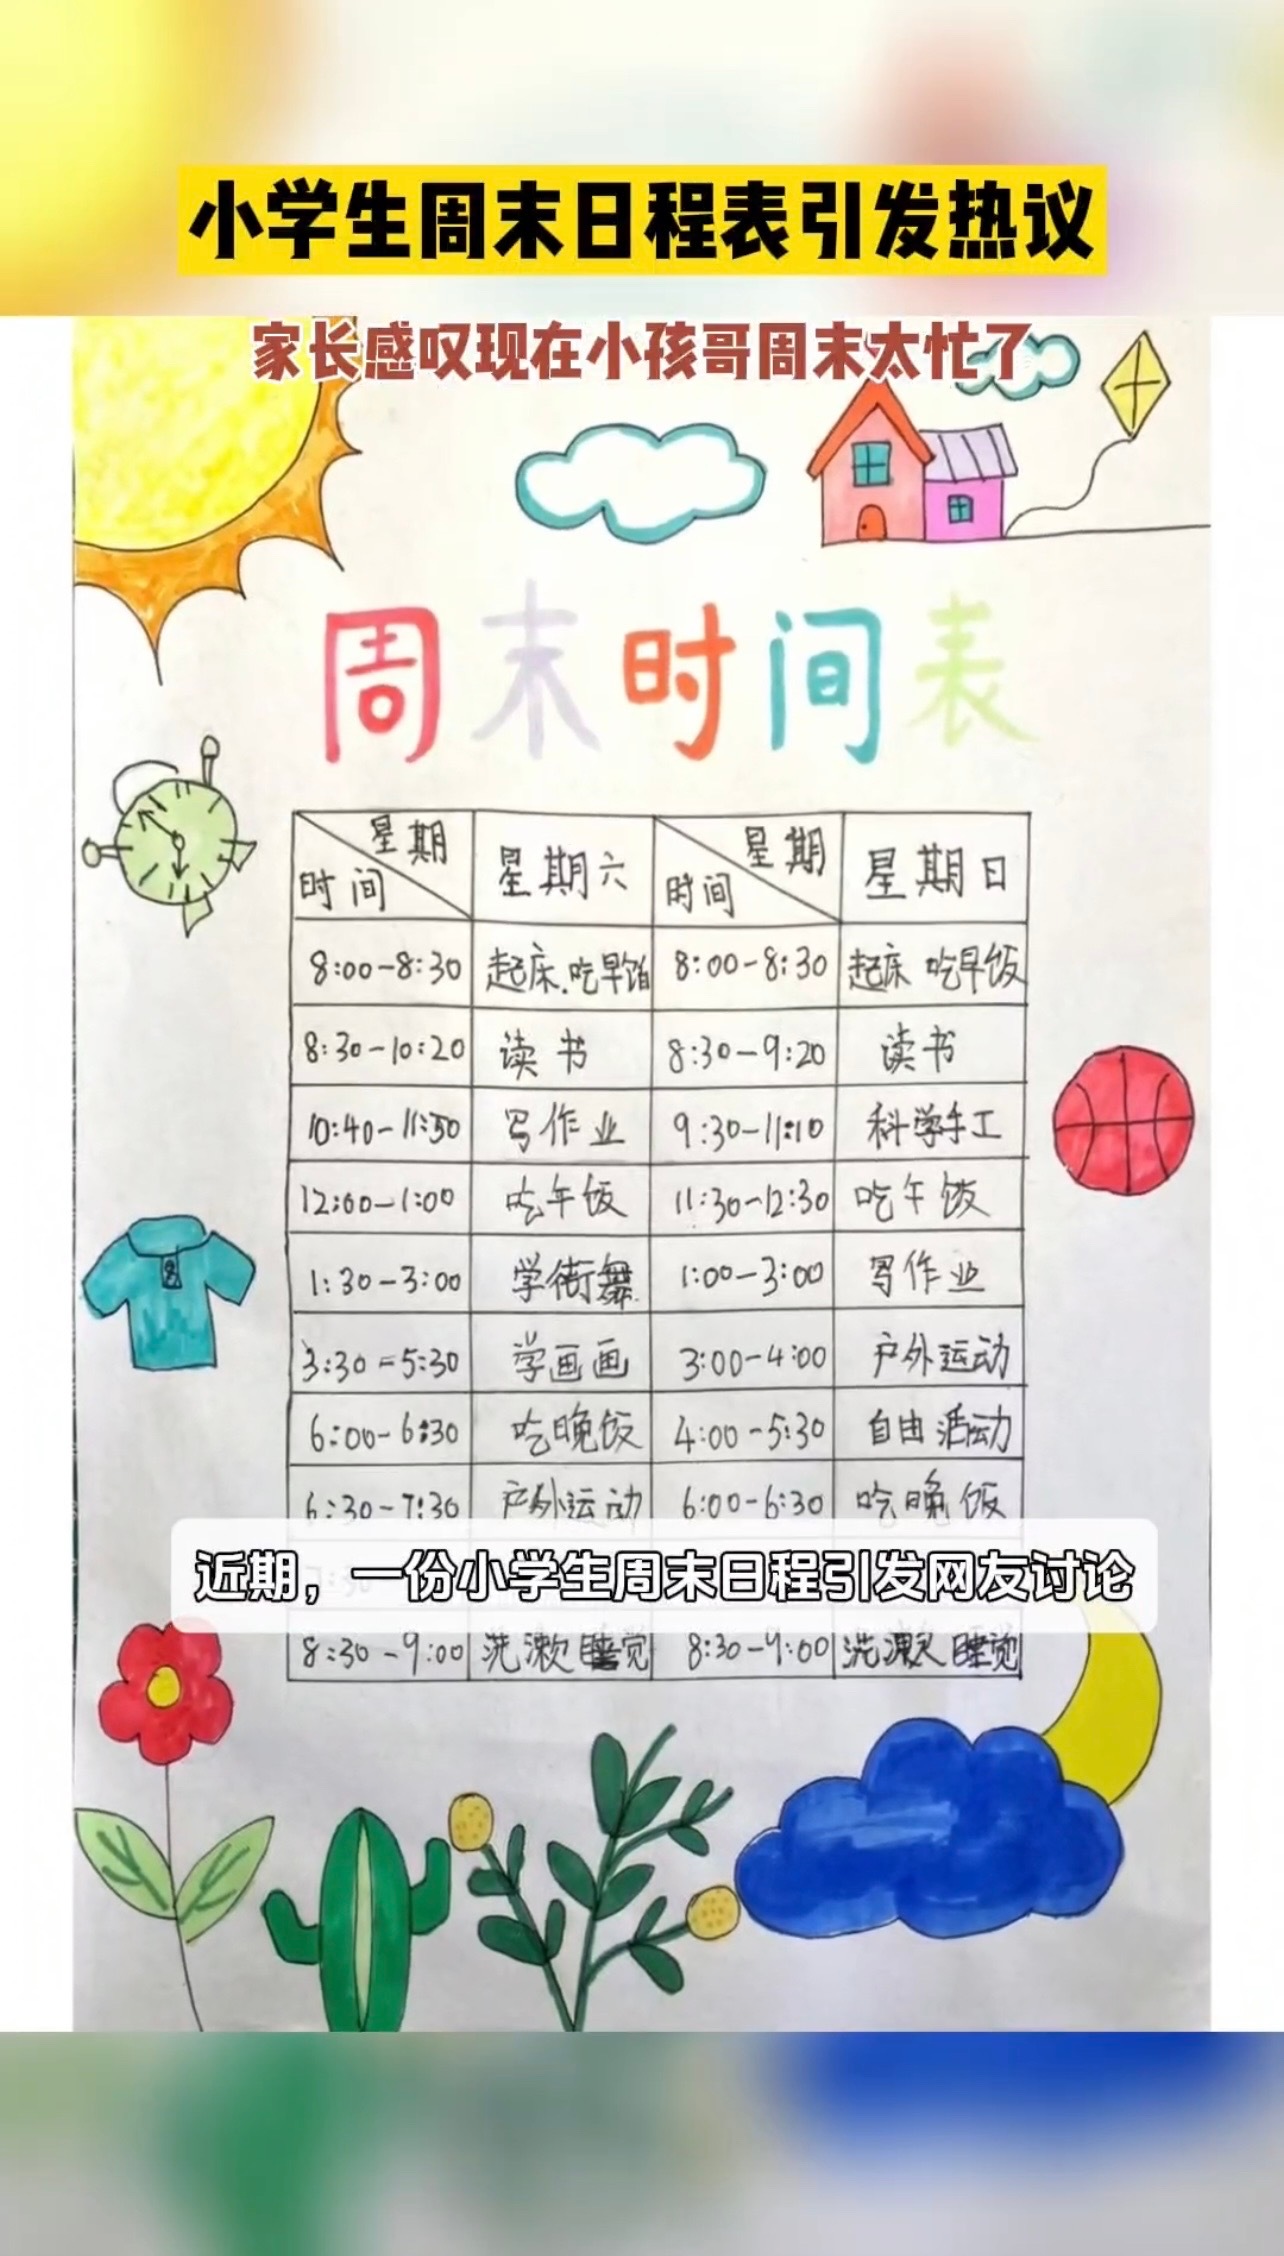 小学生周末日程表引发热议
家长感叹现在小孩哥周末太忙了
周末时间表
星期 时间 星期六 星期 时间 星期日
8:00-8:30 起床.吃早饭 8:00-8:30 起床 吃早饭
8:30-10:20 读书 8:30-9:20 读书
10:40-11:50 写作业 9:30-11:10 科学手工
12:00-1:00 吃午饭 11:30-12:30 吃午饭
1:30-3:00 学街舞 1:00-3:00 写作业
3:30-5:30 学画画 3:00-4:00 户外运动
6:00-6:30 吃晚饭 4:00-5:30 自由活动
6:30-7:30 户外运动 6:00-6:30 吃晚饭
近期，一份小学生周末日程引发网友讨论
8:30-9:00 洗漱睡觉 8:30-9:00 洗漱睡觉